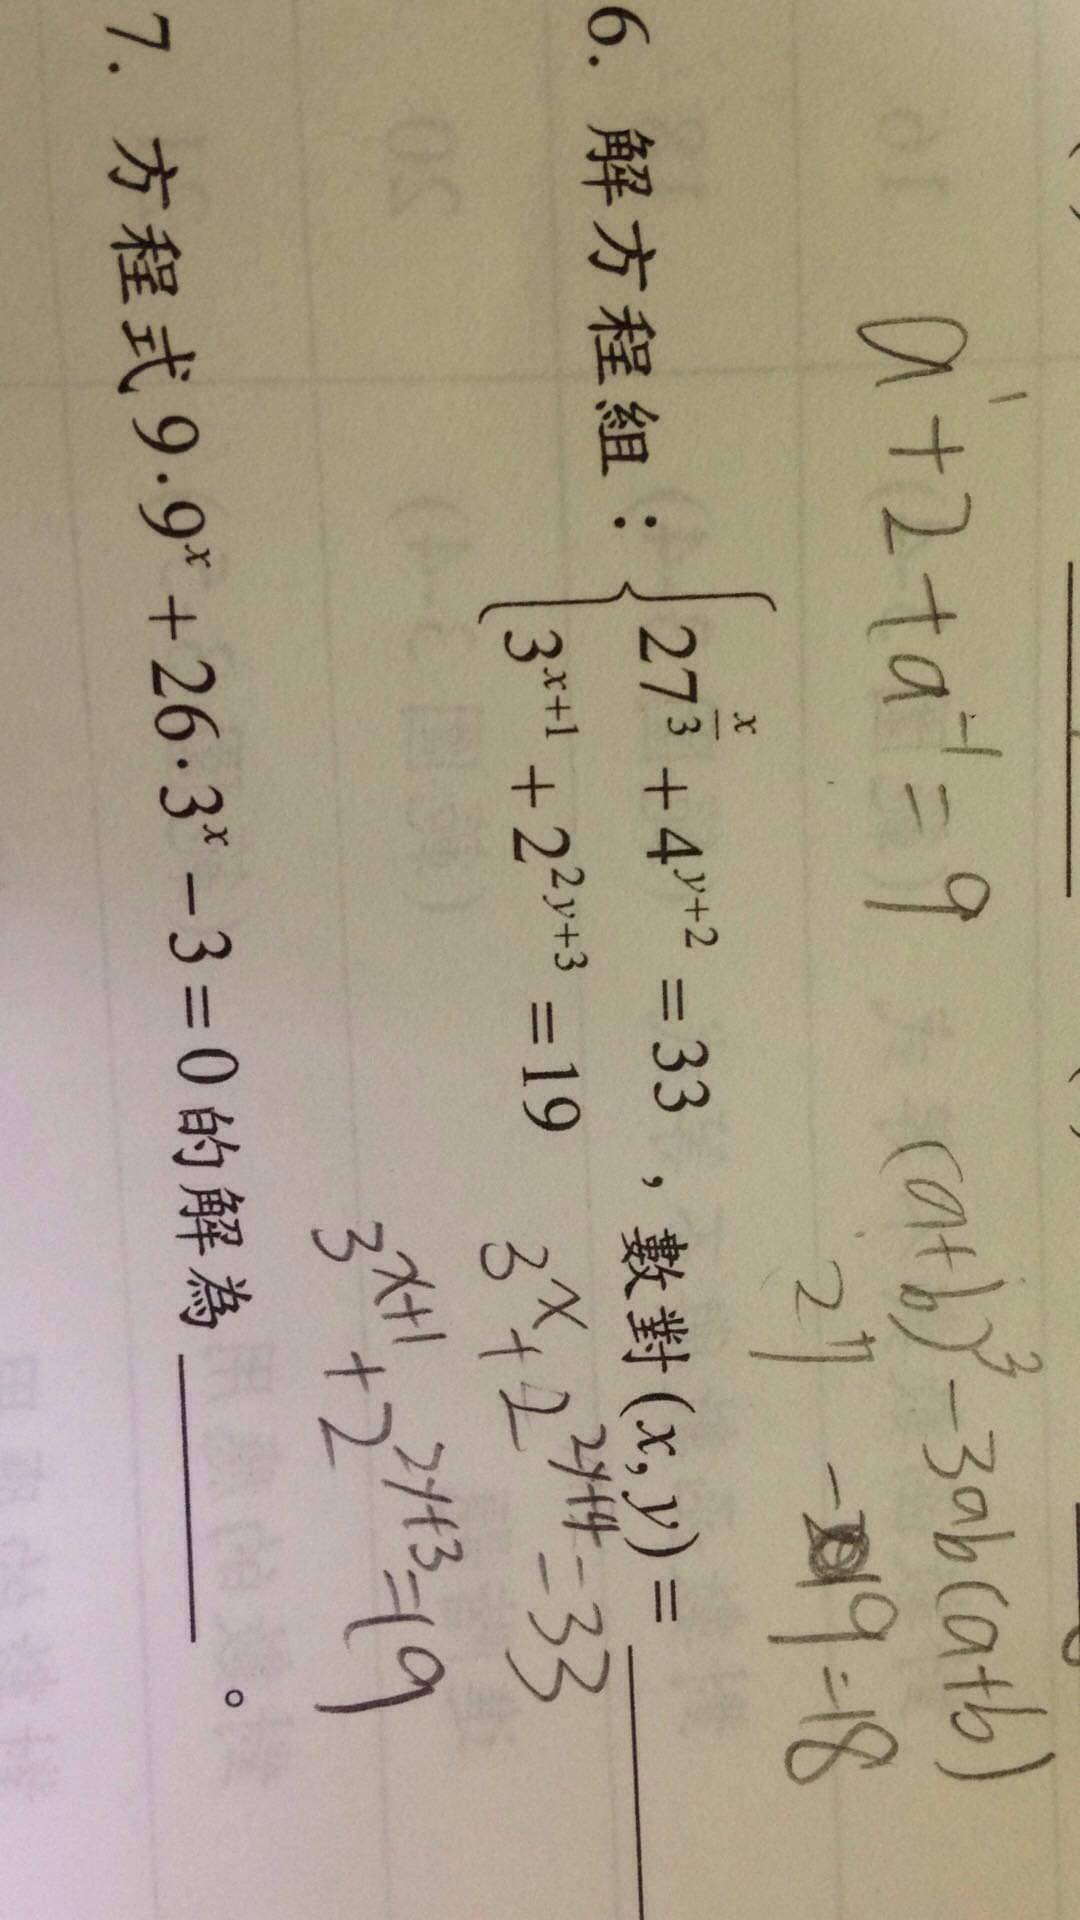 a¹+2+a⁻¹=9
(a+b)³-3ab(a+b)
27 -9=18
6. 解方程組：{27^(x/3) + 4^(y+2) = 33
3^(x+1) + 2^(2y+3) = 19 ，數對(x, y) = ______
3^x+2^(2y+4)=33
3^(x+1)+2^(2y+3)=19
7. 方程式 9·9^x + 26·3^x − 3 = 0 的解為 ______ 。